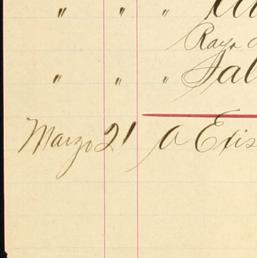 " " "
Raya
Sal
Marzo 21 A Exis